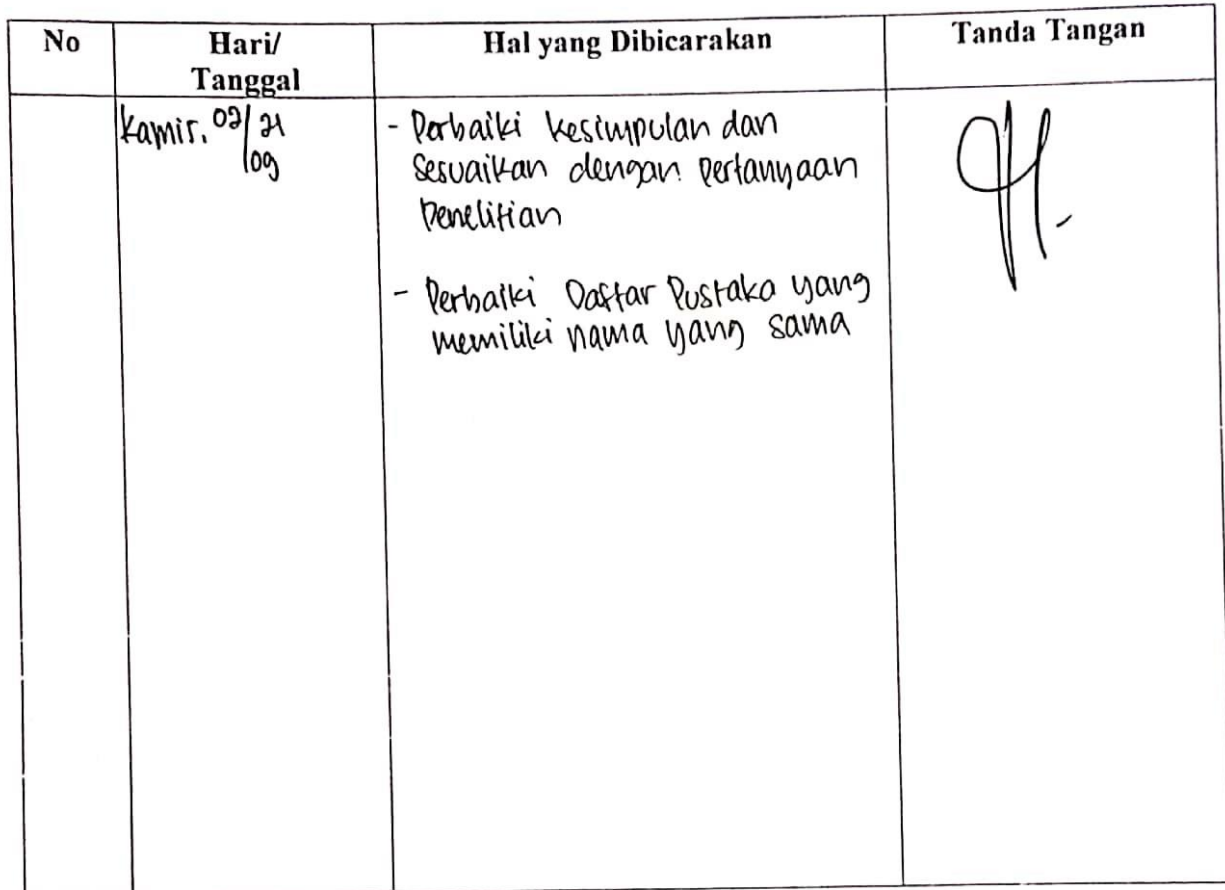 No
Hari/
Tanggal
Hal yang Dibicarakan
Tanda Tangan
Kamis, 02/21
/09
- Perbaiki kesimpulan dan
sesuaikan dengan pertanyaan
penelitian
- Perbaiki Daftar Pustaka yang
memiliki nama yang sama